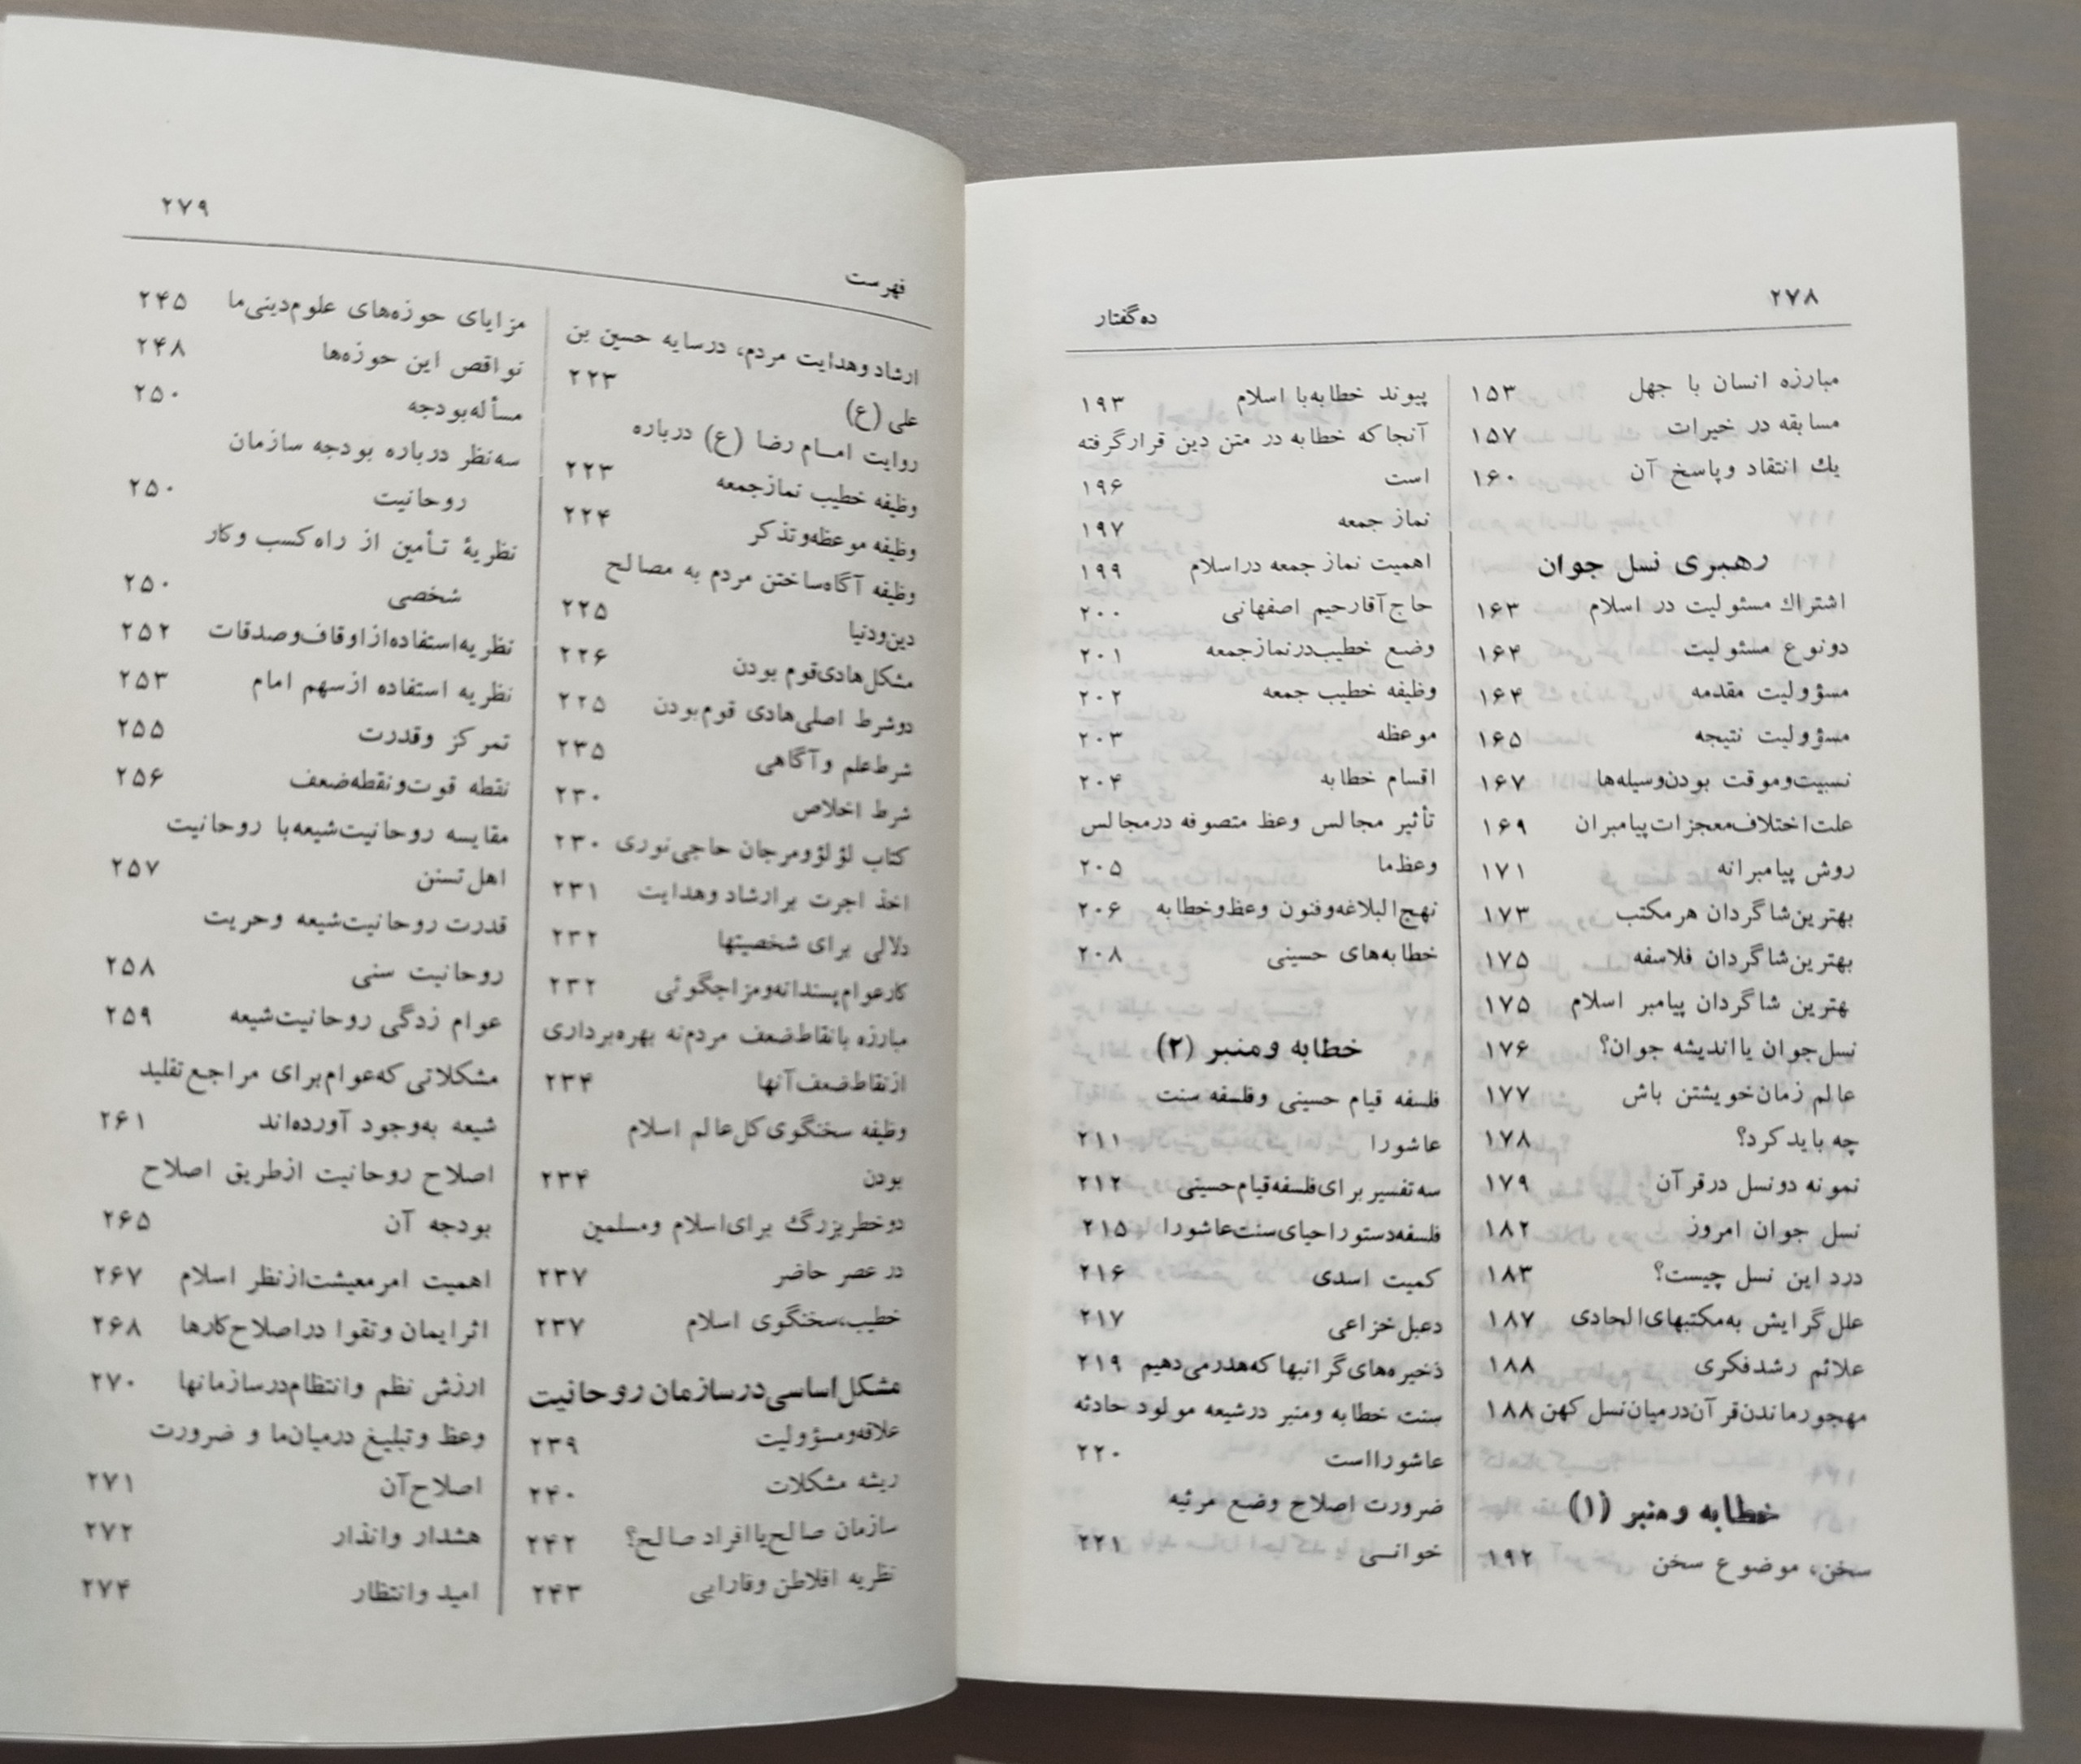 ۲۷۸
ده گفتار
مبارزه انسان با جهل ۱۵۳
مسابقه در خیرات ۱۵۷
یك انتقاد و پاسخ آن ۱۶۰
رهبری نسل جوان
اشتراك مسئولیت در اسلام ۱۶۳
دو نوع مسئولیت ۱۶۴
مسؤولیت مقدمه ۱۶۴
مسؤولیت نتیجه ۱۶۵
نسبیت و موقت بودن وسیله‌ها ۱۶۷
علت اختلاف معجزات پیامبران ۱۶۹
روش پیامبرانه ۱۷۱
بهترین شاگردان هر مکتب ۱۷۳
بهترین شاگردان فلاسفه ۱۷۵
بهترین شاگردان پیامبر اسلام ۱۷۵
نسل جوان یا اندیشه جوان؟ ۱۷۶
عالم زمان خویشتن باش ۱۷۷
چه باید کرد؟ ۱۷۸
نمونه دو نسل در قرآن ۱۷۹
نسل جوان امروز ۱۸۲
درد این نسل چیست؟ ۱۸۳
علل گرایش به مکتبهای الحادی ۱۸۷
علائم رشد فکری ۱۸۸
مهجور ماندن قرآن در میان نسل کهن ۱۸۸
خطابه و منبر (۱)
سخن، موضوع سخن ۱۹۲
پیوند خطابه با اسلام ۱۹۳
آنجا که خطابه در متن دین قرار گرفته
است ۱۹۶
نماز جمعه ۱۹۷
اهمیت نماز جمعه در اسلام ۱۹۹
حاج آقا رحیم اصفهانی ۲۰۰
وضع خطیب در نماز جمعه ۲۰۱
وظیفه خطیب جمعه ۲۰۲
موعظه ۲۰۳
اقسام خطابه ۲۰۴
تأثیر مجالس وعظ متصوفه در مجالس
وعظ ما ۲۰۵
نهج البلاغه و فنون وعظ و خطابه ۲۰۶
خطابه‌های حسینی ۲۰۸
خطابه و منبر (۲)
فلسفه قیام حسینی و فلسفه سنت
عاشورا ۲۱۱
سه تفسیر برای فلسفه قیام حسینی ۲۱۲
فلسفه دستور احیای سنت عاشورا ۲۱۵
کمیت اسدی ۲۱۶
دعبل خزاعی ۲۱۷
ذخیره‌های گرانبها که هدر می‌دهیم ۲۱۹
سنت خطابه و منبر در شیعه مولود حادثه
عاشورا است ۲۲۰
ضرورت اصلاح وضع مرثیه
خوانی ۲۲۱
۲۷۹
فهرست
ارشاد و هدایت مردم، در سایه حسین بن
علی (ع) ۲۲۳
روایت امام رضا (ع) درباره
وظیفه خطیب نماز جمعه ۲۲۳
وظیفه موعظه و تذکر ۲۲۴
وظیفه آگاه ساختن مردم به مصالح
دین و دنیا ۲۲۵
مشکل هادی قوم بودن ۲۲۶
دو شرط اصلی هادی قوم بودن ۲۲۵
شرط علم و آگاهی ۲۳۵
شرط اخلاص ۲۳۰
کتاب لؤلؤ و مرجان حاجی نوری ۲۳۰
اخذ اجرت بر ارشاد و هدایت ۲۳۱
دلالی برای شخصیتها ۲۳۲
کار عوام پسندانه و مزاجگوئی ۲۳۲
مبارزه با نقاط ضعف مردم نه بهره برداری
از نقاط ضعف آنها ۲۳۴
وظیفه سخنگوی کل عالم اسلام
بودن ۲۳۴
دو خطر بزرگ برای اسلام و مسلمین
در عصر حاضر ۲۳۷
خطیب، سخنگوی اسلام ۲۳۷
مشکل اساسی در سازمان روحانیت
علاقه و مسؤولیت ۲۳۹
ریشه مشکلات ۲۴۰
سازمان صالح یا افراد صالح؟ ۲۴۲
نظریه افلاطن و فارابی ۲۴۳
مزایای حوزه‌های علوم دینی ما ۲۴۵
نواقص این حوزه‌ها ۲۴۸
مسأله بودجه ۲۵۰
سه نظر درباره بودجه سازمان
روحانیت ۲۵۰
نظریهٔ تأمین از راه کسب و کار
شخصی ۲۵۰
نظریه استفاده از اوقاف و صدقات ۲۵۲
نظریه استفاده از سهم امام ۲۵۳
تمرکز و قدرت ۲۵۵
نقطه قوت و نقطه ضعف ۲۵۶
مقایسه روحانیت شیعه با روحانیت
اهل تسنن ۲۵۷
قدرت روحانیت شیعه و حریت
روحانیت سنی ۲۵۸
عوام زدگی روحانیت شیعه ۲۵۹
مشکلاتی که عوام برای مراجع تقلید
شیعه به وجود آورده‌اند ۲۶۱
اصلاح روحانیت از طریق اصلاح
بودجه آن ۲۶۵
اهمیت امر معیشت از نظر اسلام ۲۶۷
اثر ایمان و تقوا در اصلاح کارها ۲۶۸
ارزش نظم و انتظام در سازمانها ۲۷۰
وعظ و تبلیغ در میان ما و ضرورت
اصلاح آن ۲۷۱
هشدار و انذار ۲۷۲
امید و انتظار ۲۷۴